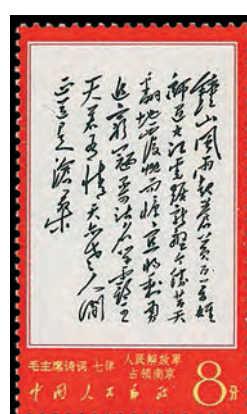 鐘山風雨起蒼黃百萬雄
師過大江虎踞龍盤今勝昔天
翻地覆慨而慷宜將剩勇
追窮寇不可沽名學霸王
天若有情天亦老人間
正道是滄桑
毛主席诗词 七律 人民解放军
占领南京
中国人民邮政 8分